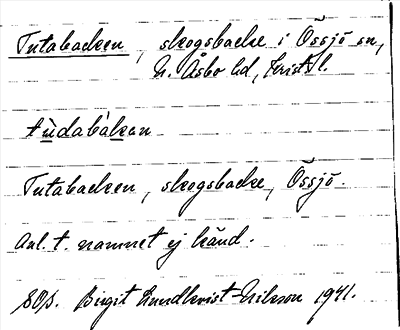 Tutabacken, skogsbacke i Össjö sn,
N. Åsbo hd, Krist. l.
tùdabàkan
Tutabacken, skogsbacke, Össjö.
Anl. t. namnet ej känd.
Birgit Lundkvist-Nilsson 1941.